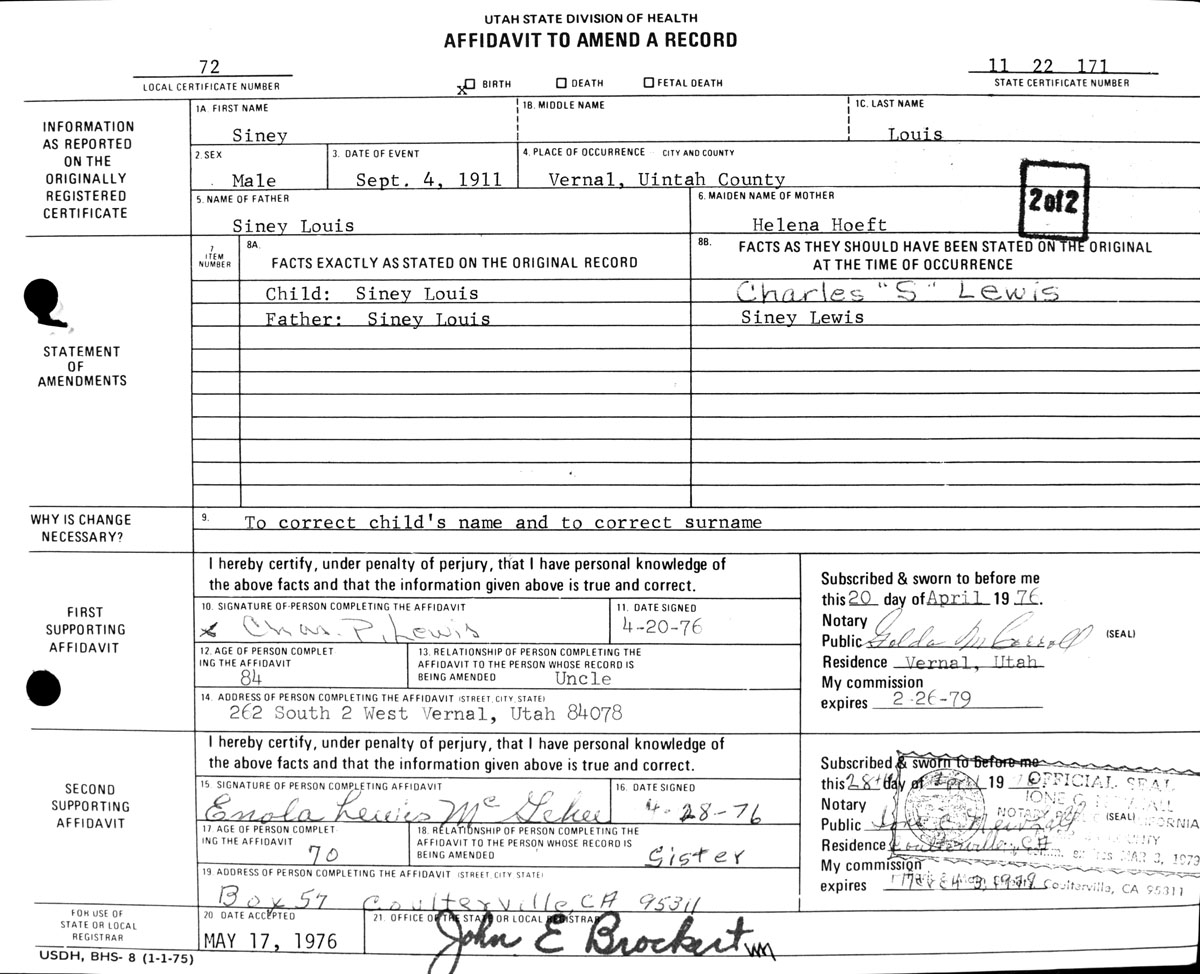 UTAH STATE DIVISION OF HEALTH
AFFIDAVIT TO AMEND A RECORD
72
LOCAL CERTIFICATE NUMBER
X BIRTH
DEATH
FETAL DEATH
11 22 171
STATE CERTIFICATE NUMBER
INFORMATION
AS REPORTED
ON THE
ORIGINALLY
REGISTERED
CERTIFICATE
1A. FIRST NAME
Siney
1B. MIDDLE NAME
1C. LAST NAME
Louis
2. SEX
Male
3. DATE OF EVENT
Sept. 4, 1911
4. PLACE OF OCCURRENCE CITY AND COUNTY
Vernal, Uintah County
5. NAME OF FATHER
Siney Louis
6. MAIDEN NAME OF MOTHER
Helena Hoeft
2 of 2
STATEMENT
OF
AMENDMENTS
7
ITEM
NUMBER
8A.
FACTS EXACTLY AS STATED ON THE ORIGINAL RECORD
8B. FACTS AS THEY SHOULD HAVE BEEN STATED ON THE ORIGINAL
AT THE TIME OF OCCURRENCE
Child: Siney Louis
Charles "S" Lewis
Father: Siney Louis
Siney Lewis
WHY IS CHANGE
NECESSARY?
9. To correct child's name and to correct surname
FIRST
SUPPORTING
AFFIDAVIT
I hereby certify, under penalty of perjury, that I have personal knowledge of
the above facts and that the information given above is true and correct.
10. SIGNATURE OF PERSON COMPLETING THE AFFIDAVIT
x Chas. P. Lewis
11. DATE SIGNED
4-20-76
12. AGE OF PERSON COMPLET
ING THE AFFIDAVIT
84
13. RELATIONSHIP OF PERSON COMPLETING THE
AFFIDAVIT TO THE PERSON WHOSE RECORD IS
BEING AMENDED Uncle
14. ADDRESS OF PERSON COMPLETING THE AFFIDAVIT (STREET, CITY, STATE)
262 South 2 West Vernal, Utah 84078
Subscribed & sworn to before me
this 20 day of April 1976.
Notary
Public Golda M Carroll (SEAL)
Residence Vernal, Utah
My commission
expires 2-26-79
SECOND
SUPPORTING
AFFIDAVIT
I hereby certify, under penalty of perjury, that I have personal knowledge of
the above facts and that the information given above is true and correct.
15. SIGNATURE OF PERSON COMPLETING THE AFFIDAVIT
Enola Lewis McGehee
16. DATE SIGNED
4-28-76
17. AGE OF PERSON COMPLET-
ING THE AFFIDAVIT
70
18. RELATIONSHIP OF PERSON COMPLETING THE
AFFIDAVIT TO THE PERSON WHOSE RECORD IS
BEING AMENDED Sister
19. ADDRESS OF PERSON COMPLETING THE AFFIDAVIT (STREET, CITY, STATE)
Box 57 Coulterville, CA 95311
Subscribed & sworn to before me
this 28th day of April 19
Notary
Public (SEAL)
Residence Coulterville, CA
My commission
expires
OFFICIAL SEAL
Coulterville, CA 95311
FOR USE OF
STATE OR LOCAL
REGISTRAR
20. DATE ACCEPTED
MAY 17, 1976
21. OFFICE OF THE STATE OR LOCAL REGISTRAR
John E Brockert
USDH, BHS- 8 (1-1-75)